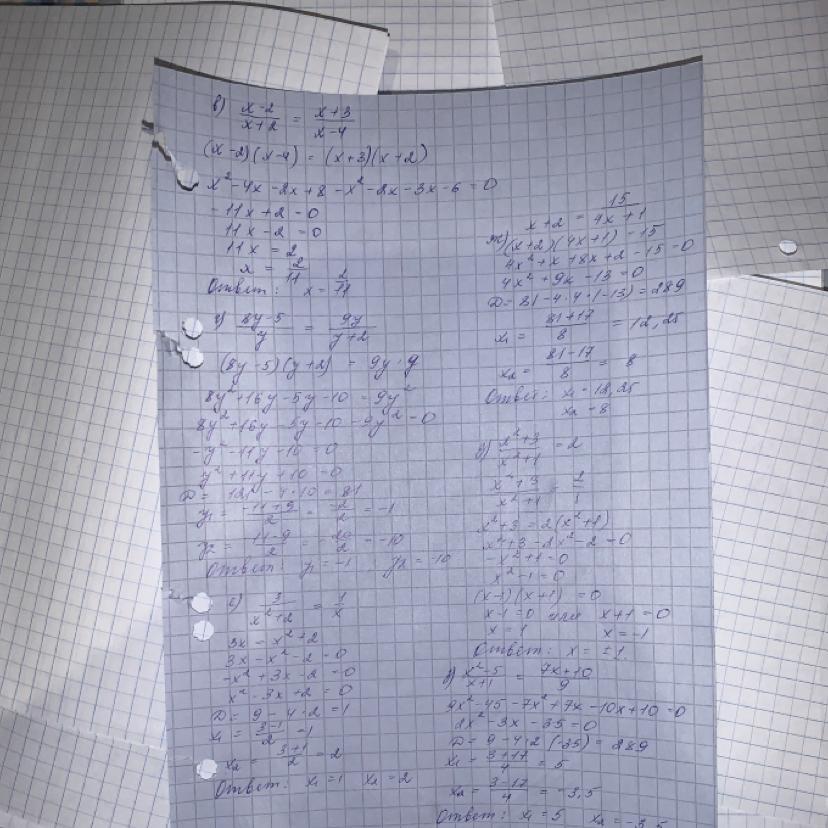 в) (x-2)/(x+2) = (x+3)/(x-4)
(x-2)(x-4) = (x+3)(x+2)
x²-4x-2x+8-x²-2x-3x-6=0
-11x+2=0
11x-2=0
11x=2
x = 2/11
Ответ: x = 2/11
г) (8y-5)/y = 9y/(y+2)
(8y-5)(y+2) = 9y·y
8y²+16y-5y-10=9y²
8y²+16y-5y-10-9y²=0
-y²-11y-10=0
y²+11y+10=0
D = 121-4·10=81
y₁ = (-11+9)/2 = -2/2 = -1
y₂ = (-11-9)/2 = -20/2 = -10
Ответ: y₁=-1 y₂=-10
е) 3/(x²+2) = 1/x
3x=x²+2
3x-x²-2=0
-x²+3x-2=0
x²-3x+2=0
D=9-4·2=1
x₁ = (3-1)/2 = 1
x₂ = (3+1)/2 = 2
Ответ: x₁=1 x₂=2
ж) x+2 = 15/(4x+1)
(x+2)(4x+1)=15
4x²+x+8x+2-15=0
4x²+9x-13=0
D=81-4·4·(-13)=289
x₁ = (81+17)/8 = 12,25
x₂ = (81-17)/8 = 8
Ответ: x₁=12,25
x₂=8
д) (x²+3)/(x²+1) = 2
(x²+3)/(x²+1) = 2/1
x²+3=2(x²+1)
x²+3-2x²-2=0
-x²+1=0
x²-1=0
(x-1)(x+1)=0
x-1=0 или x+1=0
x=1 x=-1
Ответ: x=±1
(x²-5)/(x+1) = (7x+10)/9
9x²-45-7x²+7x-10x+10=0
2x²-3x-35=0
D=9-4·2(-35)=289
x₁ = (3+17)/4 = 5
x₂ = (3-17)/4 = -3,5
Ответ: x₁=5 x₂=-3,5